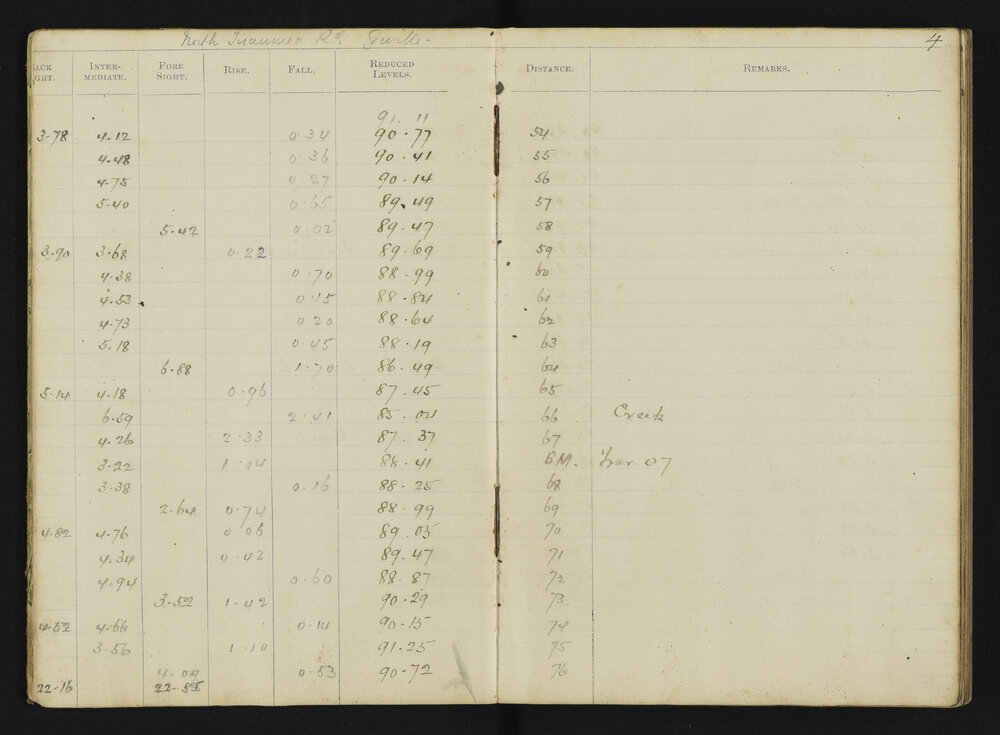 North Tuaumea Rd Seville 4
BACK SIGHT. INTER-MEDIATE. FORE SIGHT. RISE. FALL. REDUCED LEVELS. DISTANCE. REMARKS.
91.11
3.78 4.12 0.34 90.77 54
4.48 0.36 90.41 55
4.75 0.27 90.14 56
5.40 0.65 89.49 57
5.42 0.02 89.47 58
3.90 3.68 0.22 89.69 59
4.38 0.70 88.99 60
4.53 0.15 88.84 61
4.73 0.20 88.64 62
5.18 0.45 88.19 63
6.88 1.70 86.49 64
5.14 4.18 0.96 87.45 65
6.59 2.41 85.04 66 Creek
4.26 2.33 87.37 67
3.22 1.04 88.41 BM. 07
3.38 0.16 88.25 68
2.64 0.74 88.99 69
4.82 4.76 0.06 89.05 70
4.34 0.42 89.47 71
4.94 0.60 88.87 72
3.52 1.42 90.29 73
4.52 4.66 0.14 90.15 74
3.56 1.10 91.25 75
4.09 0.53 90.72 76
22.16 22.55